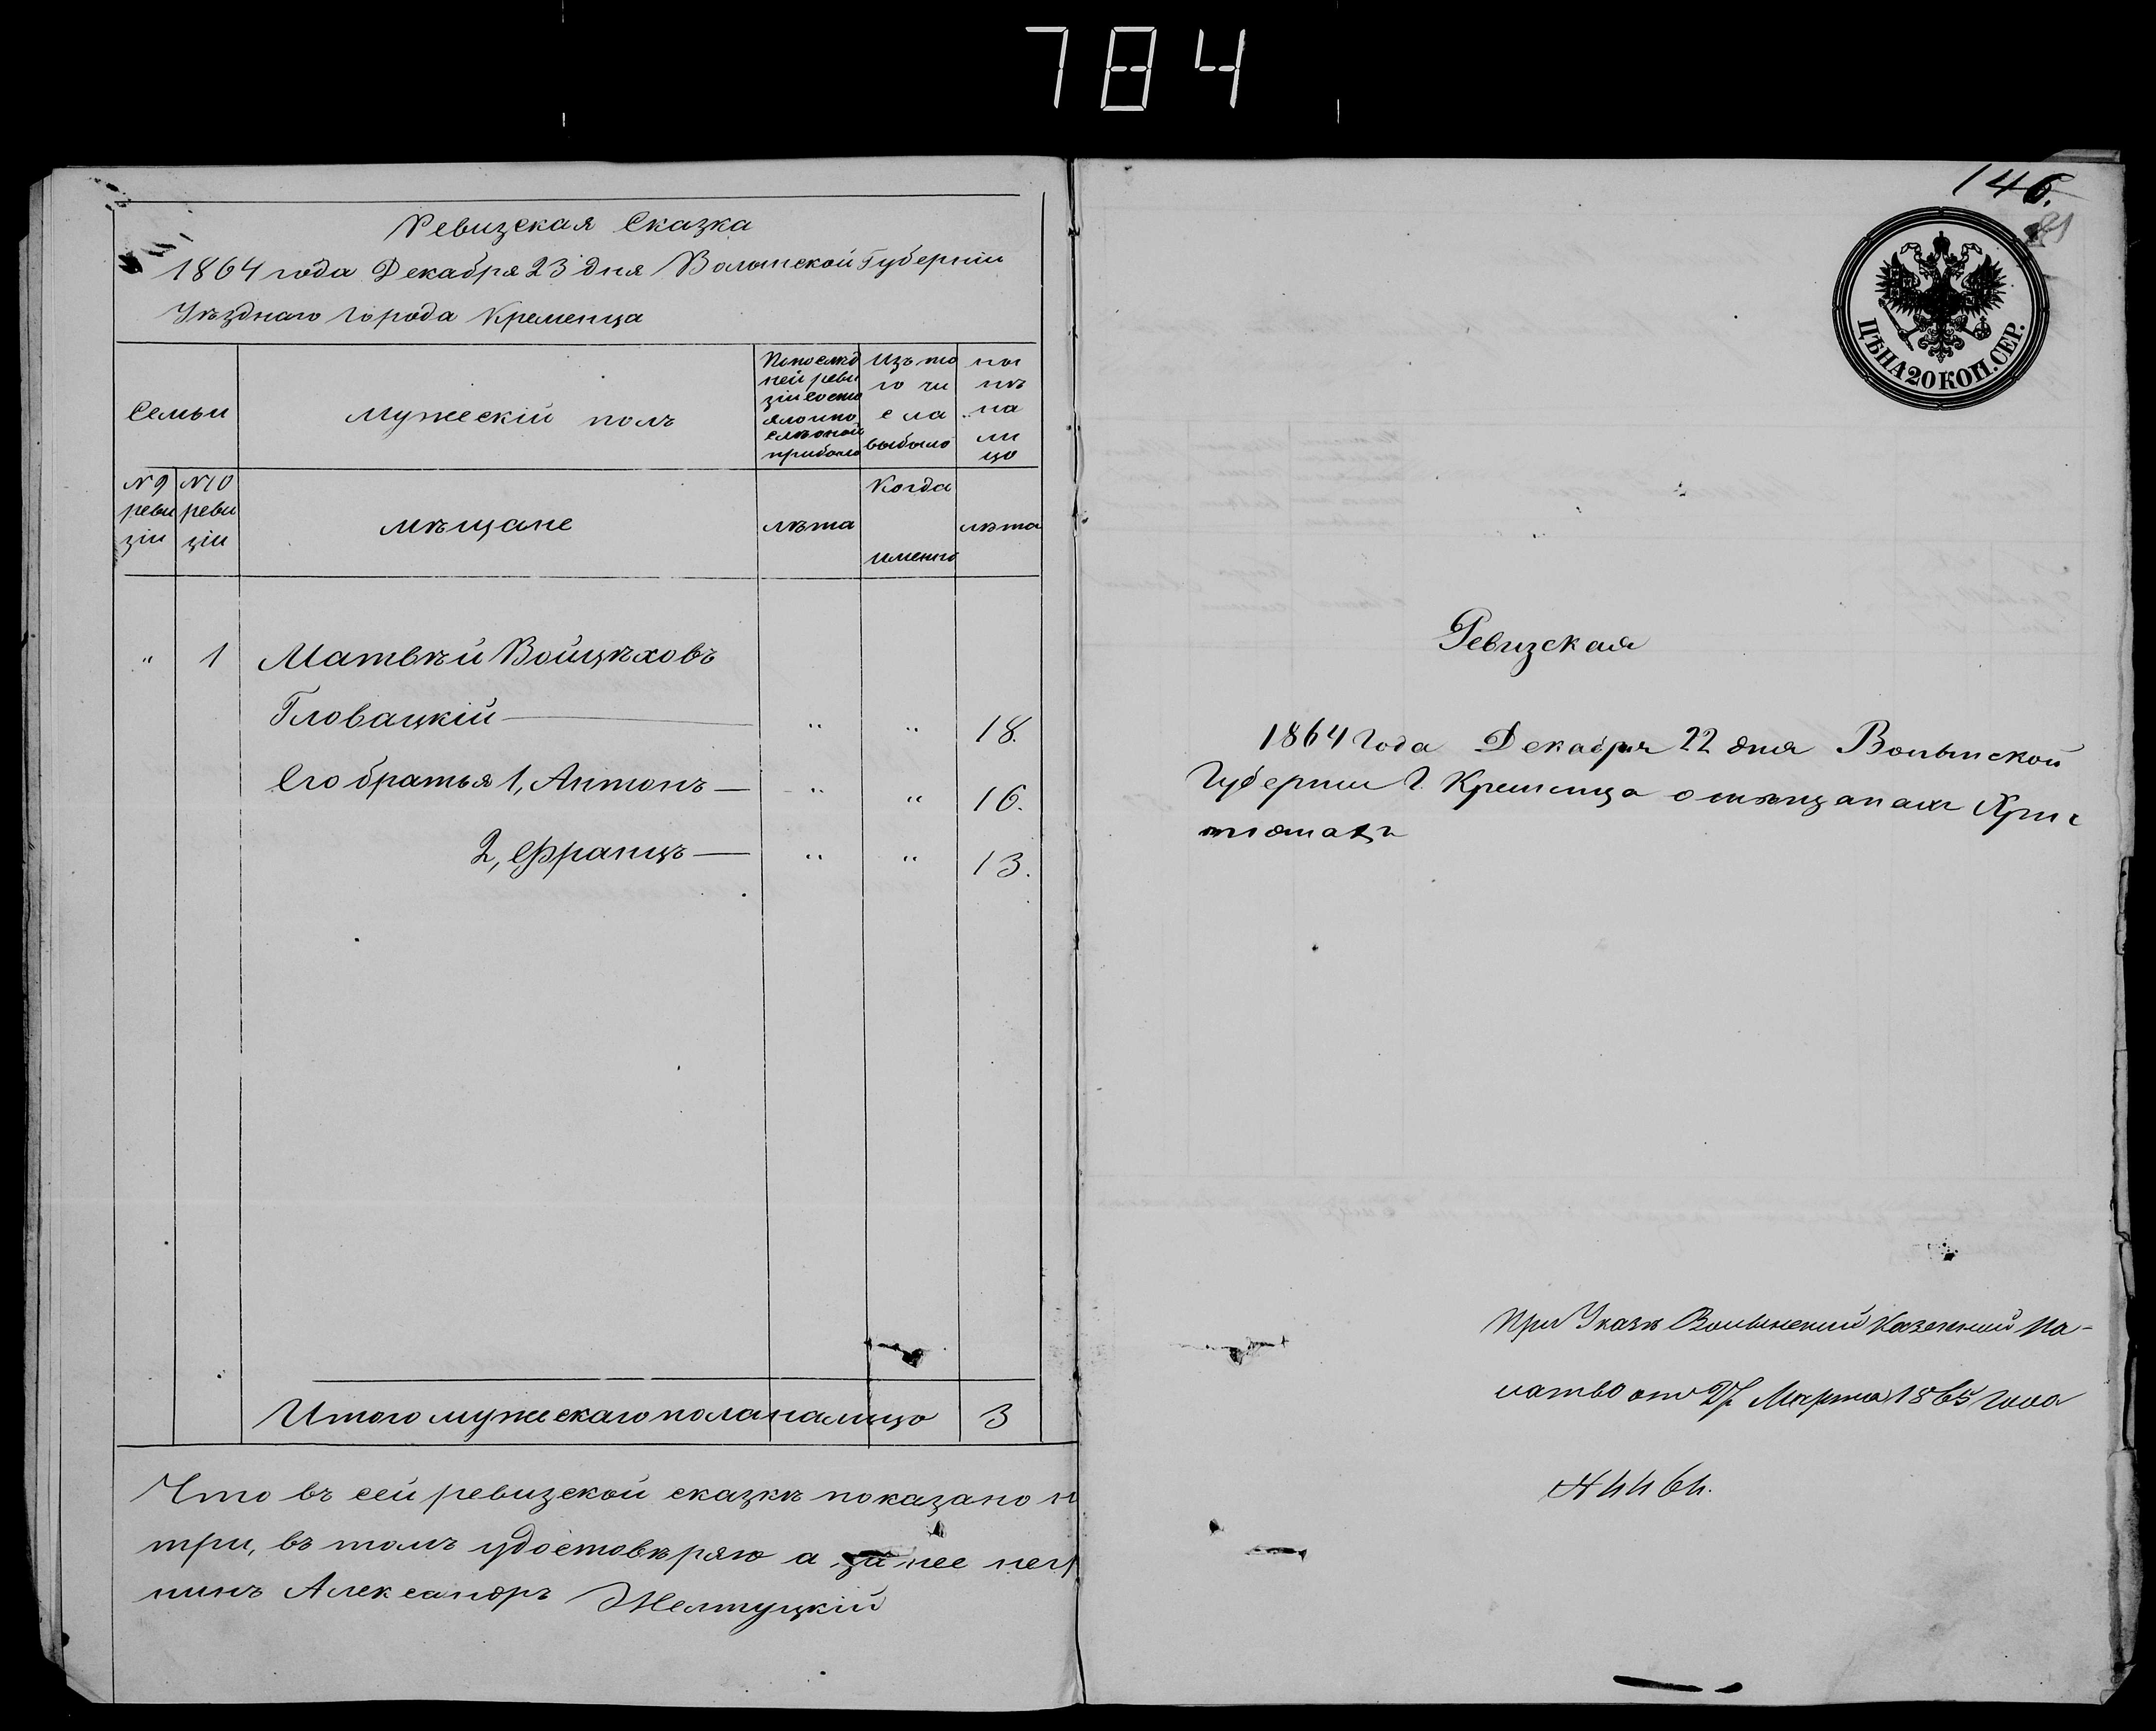 784
Ревизская Сказка
1864 года Декабря 23 дня Волынской Губерніи
Уѣзднаго города Кременца
Семьи
Мужескій полъ
По послѣд
ней реви
зіи состо
яло и по
слѣ оной
прибыло
Изъ то
го чи
сла
выбыло
ны
нѣ
на
ли
цо
№ 9
реви
зіи
№ 10
реви
зіи
мѣщане
лѣта
Когда
именно
лѣта
„ 1 Матвѣй Войцѣховъ
Гловацкій — „ „ 18.
Его братья 1, Антонъ — „ „ 16.
2, Францъ — „ „ 13.
Итого мужескаго пола налицо 3
Что въ сей ревизской сказкѣ показано
три, въ томъ удостовѣряю а за нее
нинъ Александръ Желтуцкій
146.
ЦѢНА 20 КОП. СЕР.
Ревизская
1864 Года Декабря 22 дня Волынской
Губерніи Г. Кременца о мѣщанахъ Хрис
тіанахъ
При Указѣ Волынской Казенной Па-
латы отъ Марта 1865 года
№ 4464.